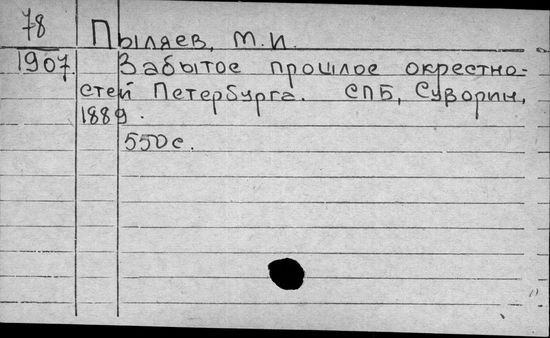 78
Пыляев, М.И.
1907.
Забытое прошлое окрестно-
стей Петербурга. СПБ, Суворин,
1889.
550с.